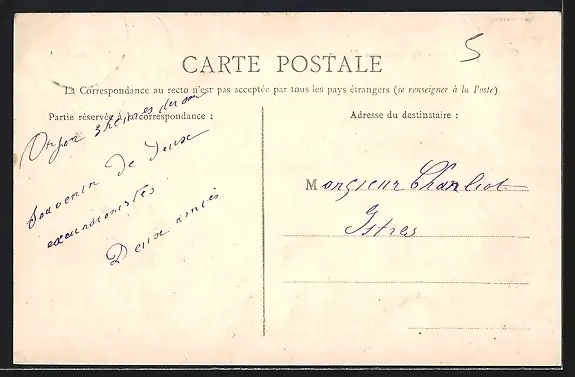 5
CARTE POSTALE
La Correspondance au recto n'est pas acceptée par tous les pays étrangers (se renseigner à la Poste)
Partie réservée à la correspondance :
Adresse du destinataire :
Orgon
Souvenir de deux
excursionistes
Deux amies
Monsieur Chanliot
Istres